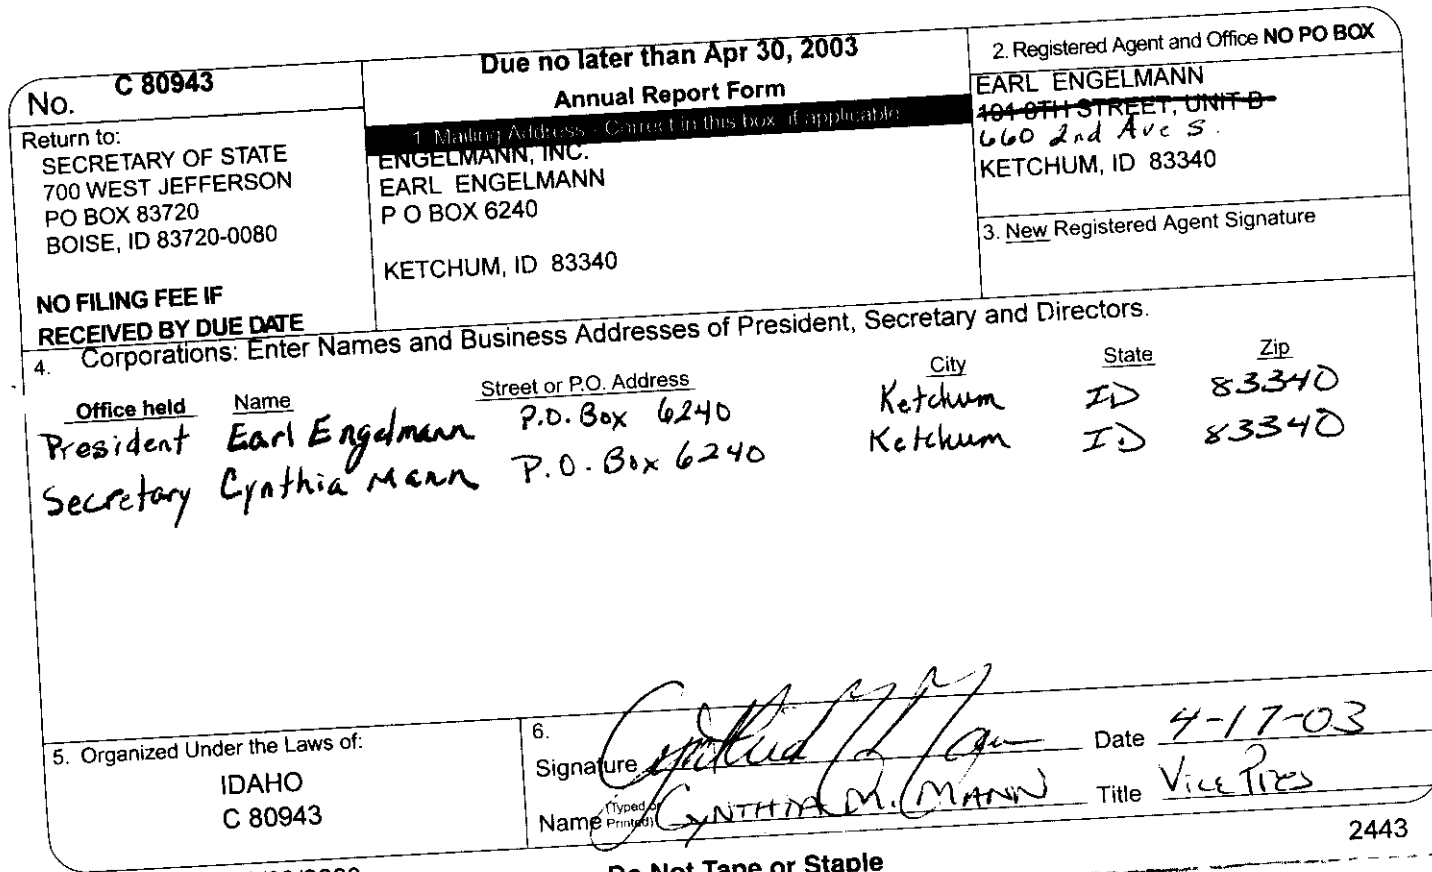 No. C 80943
Return to:
SECRETARY OF STATE
700 WEST JEFFERSON
PO BOX 83720
BOISE, ID 83720-0080
NO FILING FEE IF
RECEIVED BY DUE DATE
Due no later than Apr 30, 2003
Annual Report Form
1. Mailing Address - Correct in this box, if applicable
ENGELMANN, INC.
EARL ENGELMANN
P O BOX 6240
KETCHUM, ID 83340
2. Registered Agent and Office NO PO BOX
EARL ENGELMANN
101 8TH STREET, UNIT B
660 2nd Ave S.
KETCHUM, ID 83340
3. New Registered Agent Signature
4. Corporations: Enter Names and Business Addresses of President, Secretary and Directors.
Office held Name Street or P.O. Address City State Zip
President Earl Engelmann P.O. Box 6240 Ketchum ID 83340
Secretary Cynthia Mann P.O. Box 6240 Ketchum ID 83340
5. Organized Under the Laws of:
IDAHO
C 80943
6.
Signature Cynthia M. Mann Date 4-17-03
Name (Typed or Printed) CYNTHIA M. MANN Title Vice Pres
2443
Do Not Tape or Staple